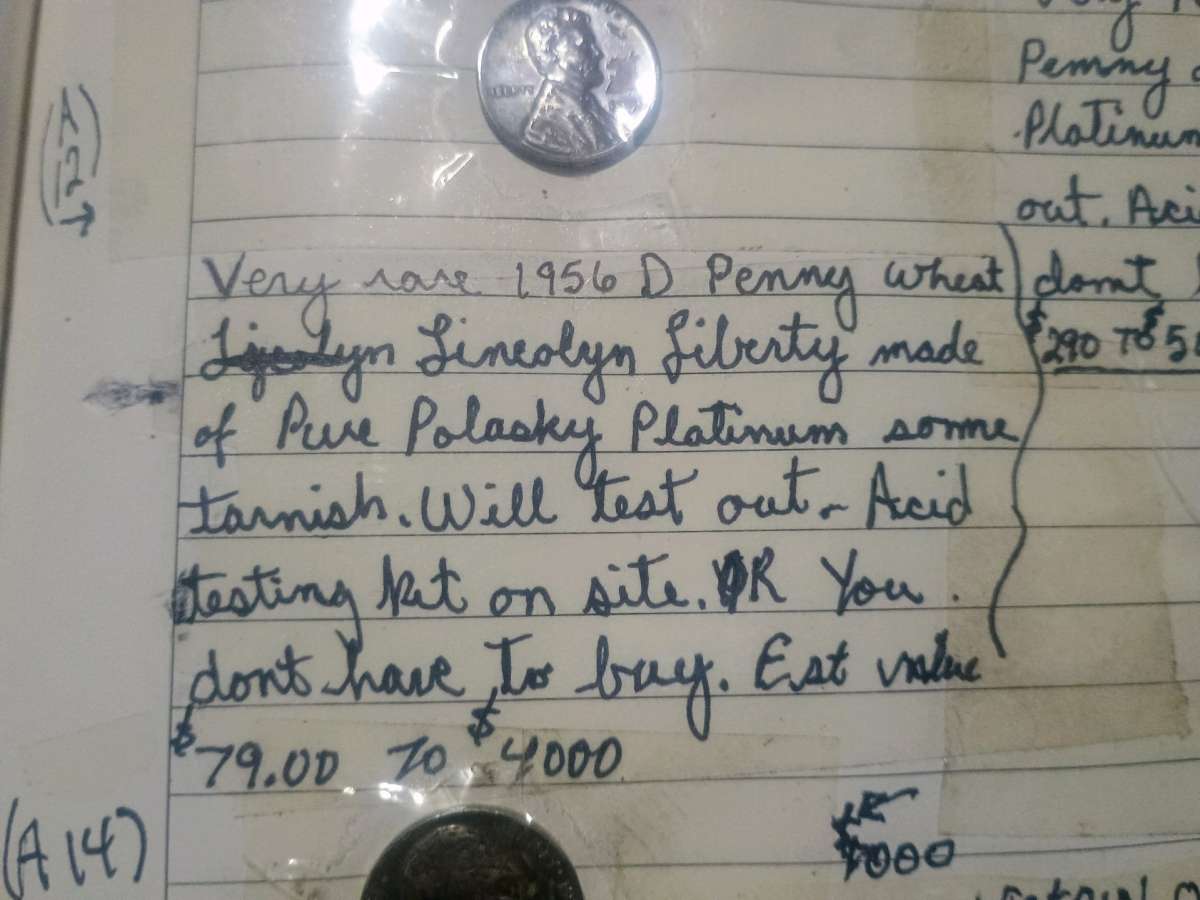 (A
12)
Penny
Platinum
out.
Very rare 1956 D Penny wheat
Lincolyn Liberty made
of Pure Polasky Platinum some
tarnish. Will test out - Acid
testing kit on site. OR You
dont have To buy. Est value
$79.00 To $4000
domt
$290 To $5
(A 14)
$1000